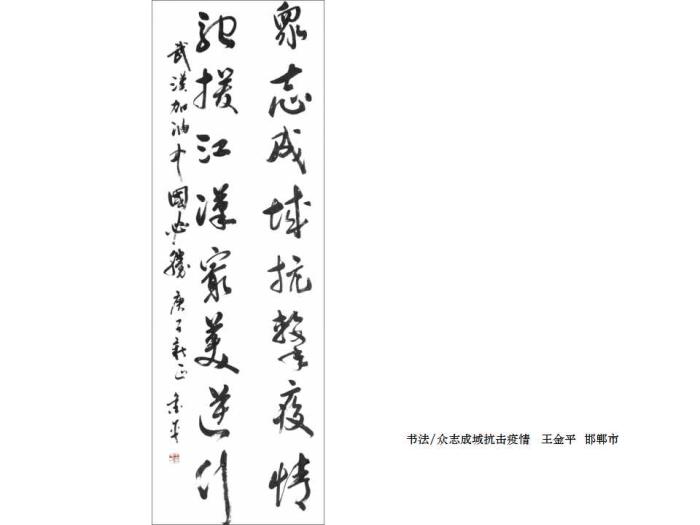 眾志成域抗擊疫情
馳援江漢最美逆行
武漢加油中國必勝 庚子新正 金平
书法/众志成域抗击疫情 王金平 邯郸市